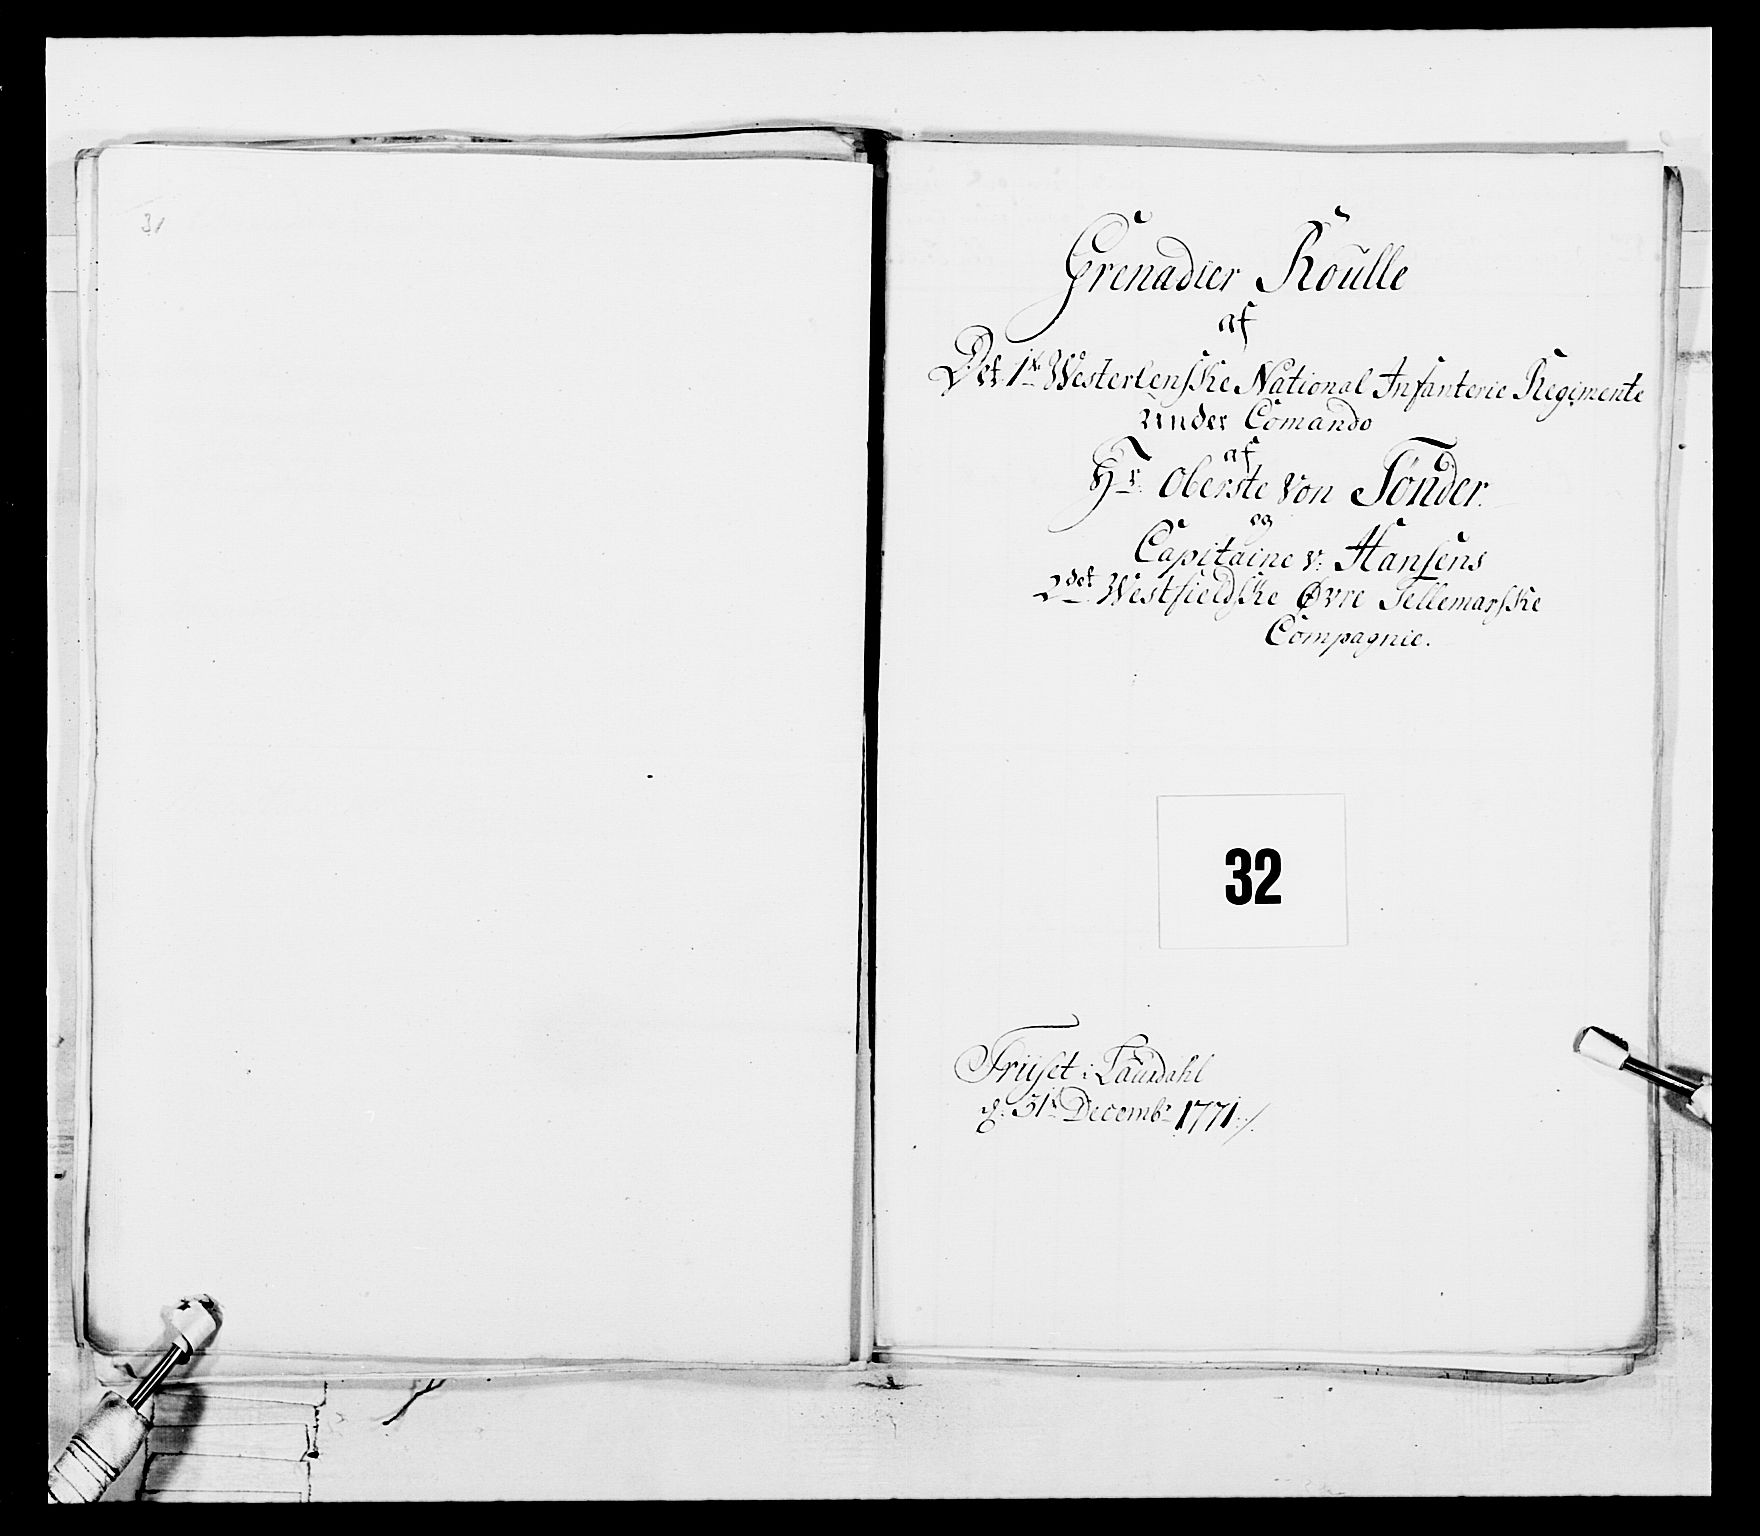 31
Grenadier Roulle
af
Det 1te Westerlenske National Infanterie Regimente
under Comando
af
Hr. Oberste von Tönder.
og
Capitaine v: Hansens
2det Westfieldske Øvre Tellemarske
Compagnie.
32
Triset i Laurdahl
d: 31te Decembr 1771./.